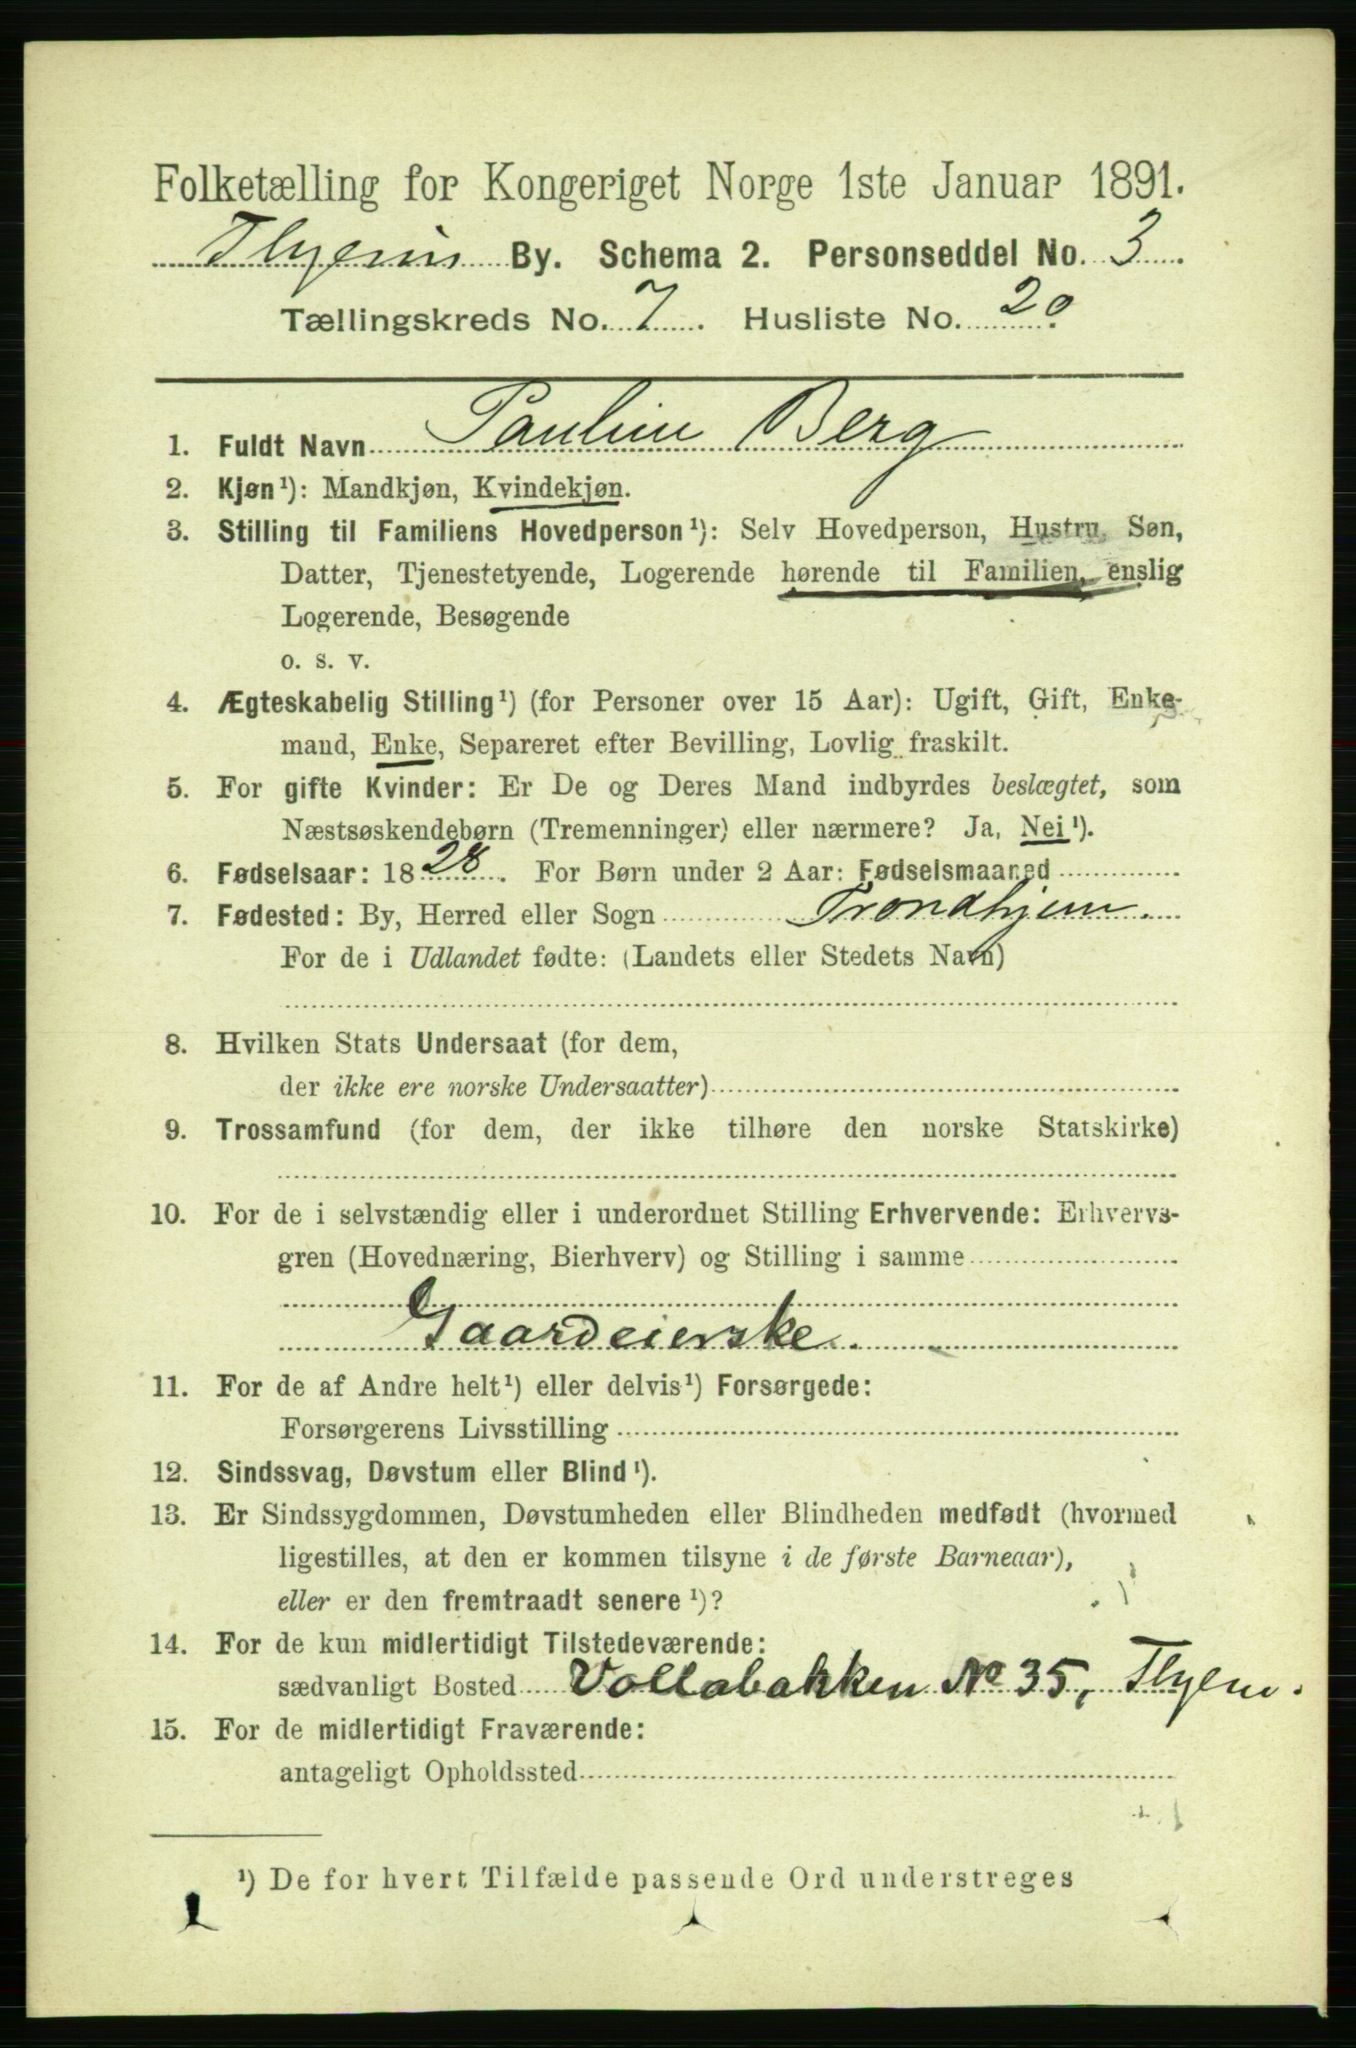 Folketælling for Kongeriget Norge 1ste Januar 1891.
Thjem By. Schema 2. Personseddel No. 3
Tællingskreds No. 7. Husliste No. 20
1. Fuldt Navn Pauline Berg
2. Kjøn¹): Mandkjøn, Kvindekjøn.
3. Stilling til Familiens Hovedperson¹): Selv Hovedperson, Hustru, Søn,
Datter, Tjenestetyende, Logerende hørende til Familien, enslig
Logerende, Besøgende
o. s. v.
4. Ægteskabelig Stilling¹) (for Personer over 15 Aar): Ugift, Gift, Enke-
mand, Enke, Separeret efter Bevilling, Lovlig fraskilt.
5. For gifte Kvinder: Er De og Deres Mand indbyrdes beslægtet, som
Næstsøskendebørn (Tremenninger) eller nærmere? Ja, Nei¹).
6. Fødselsaar: 1828. For Børn under 2 Aar: Fødselsmaaned
7. Fødested: By, Herred eller Sogn Trondhjem.
For de i Udlandet fødte: (Landets eller Stedets Navn)
8. Hvilken Stats Undersaat (for dem,
der ikke ere norske Undersaatter)
9. Trossamfund (for dem, der ikke tilhøre den norske Statskirke)
10. For de i selvstændig eller i underordnet Stilling Erhvervende: Erhvervs-
gren (Hovednæring, Bierhverv) og Stilling i samme
Gaardeierske.
11. For de af Andre helt¹) eller delvis¹) Forsørgede:
Forsørgerens Livsstilling
12. Sindssvag, Døvstum eller Blind¹).
13. Er Sindssygdommen, Døvstumheden eller Blindheden medfødt (hvormed
ligestilles, at den er kommen tilsyne i de første Barneaar),
eller er den fremtraadt senere¹)?
14. For de kun midlertidigt Tilstedeværende:
sædvanligt Bosted Vollabakken No 35, Thjem.
15. For de midlertidigt Fraværende:
antageligt Opholdssted
¹) De for hvert Tilfælde passende Ord understreges